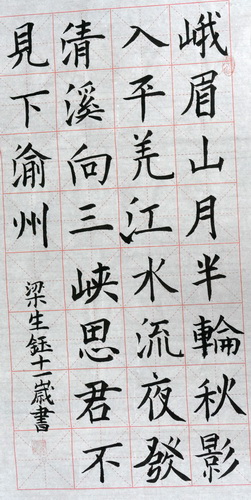 峨眉山月半輪秋影
入平羌江水流夜發
清溪向三峡思君不
見下渝州
梁生鈺十一歲書